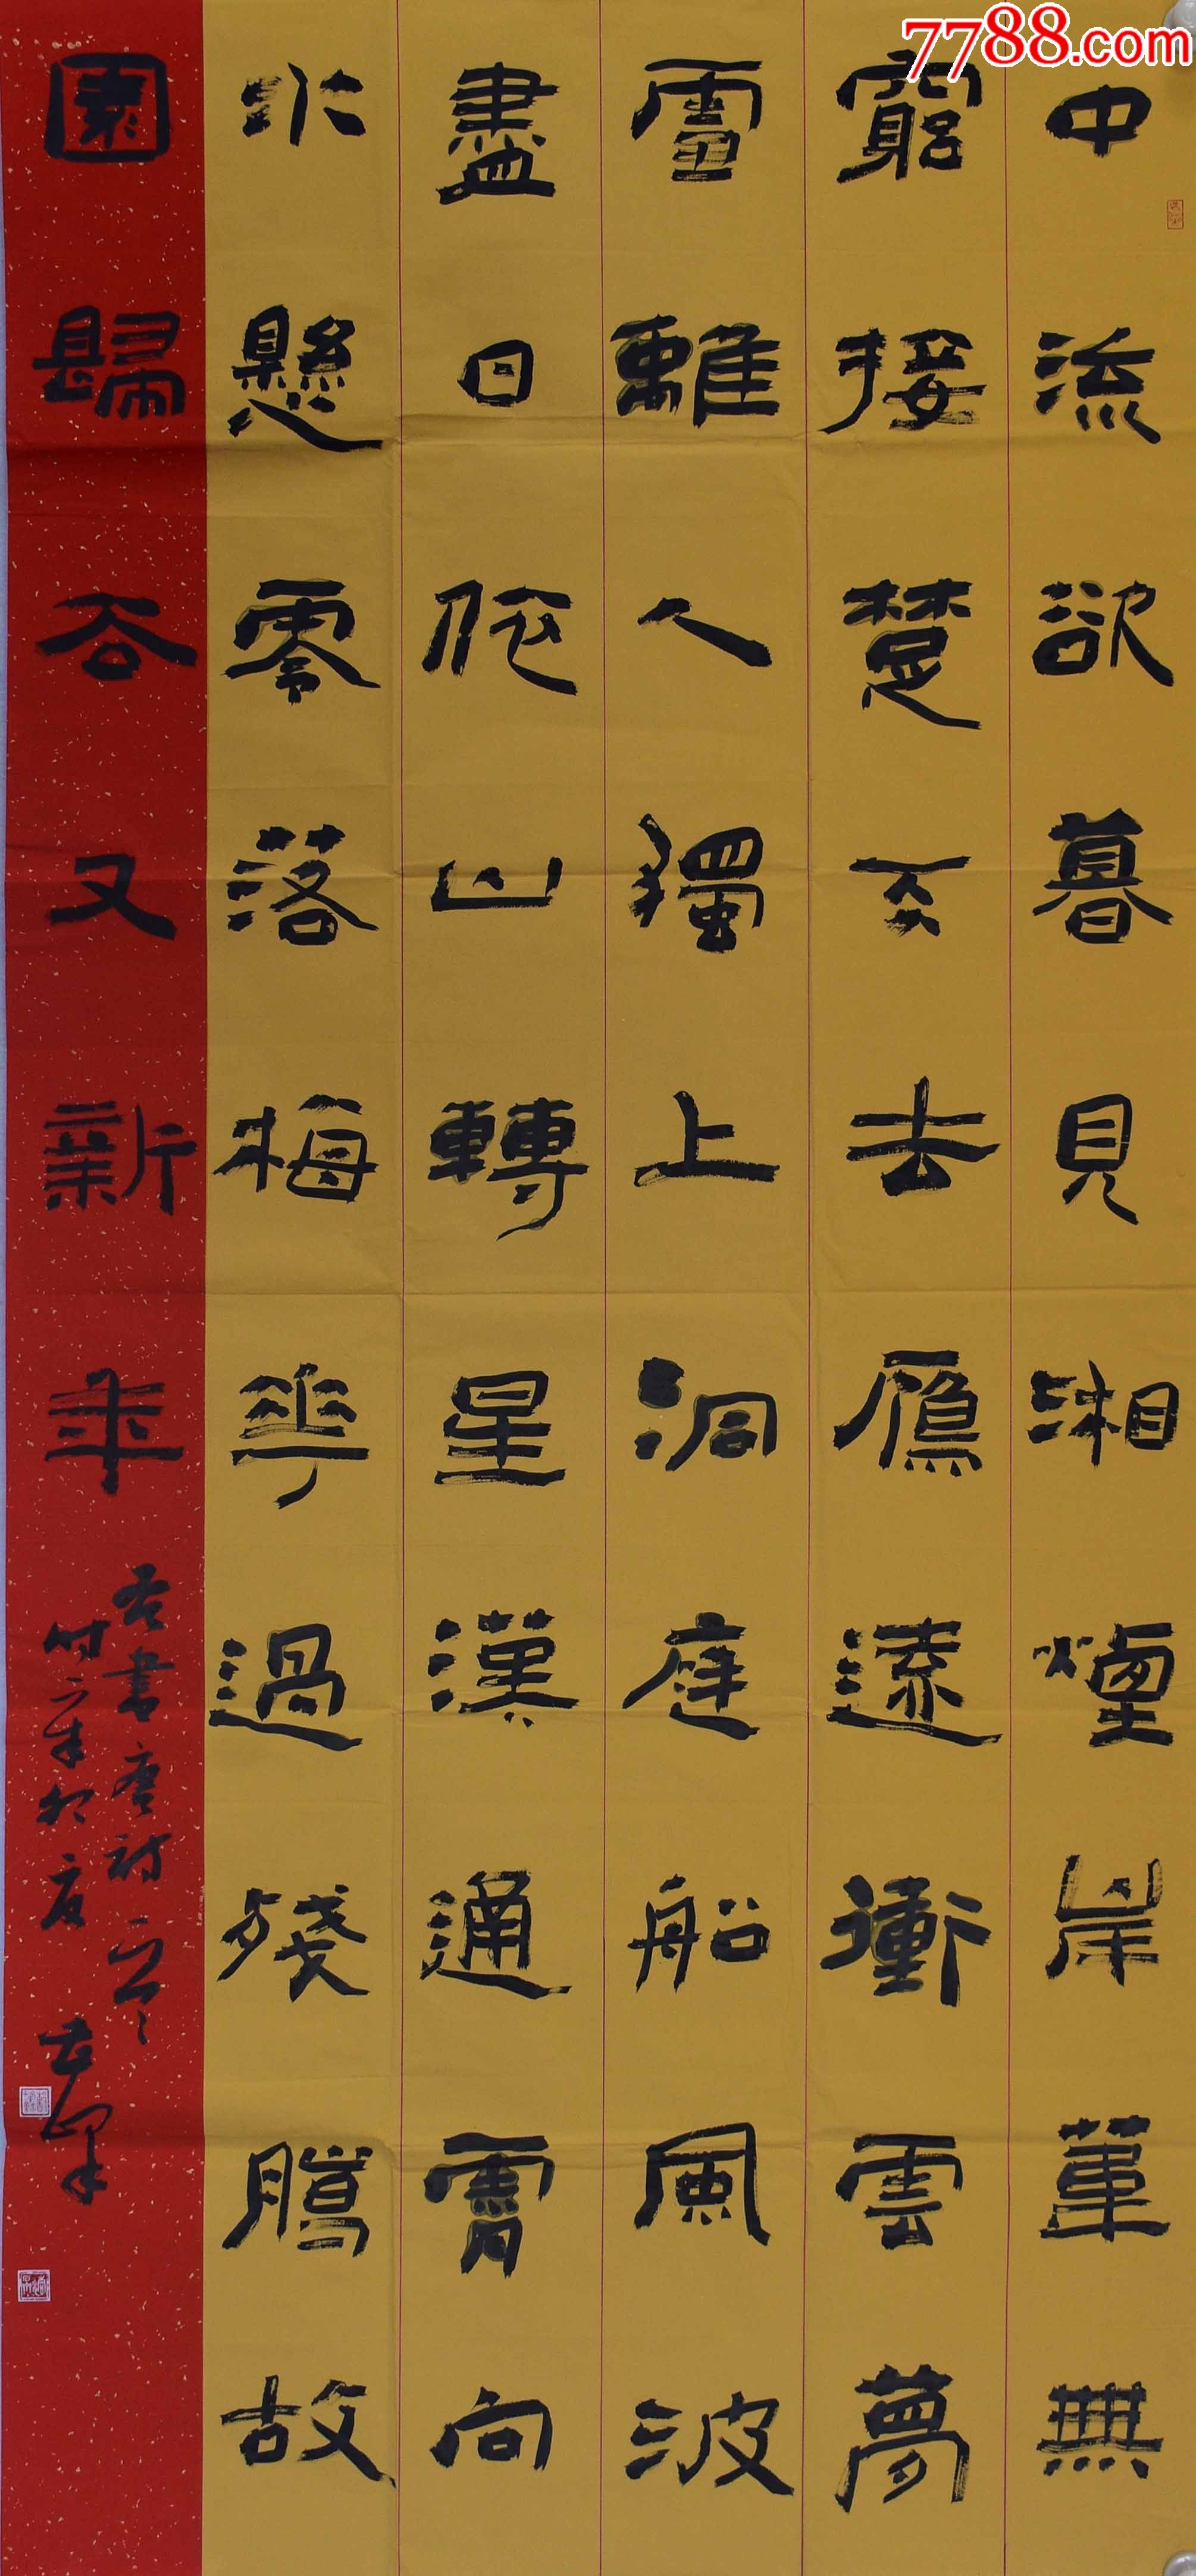 7788.com
中流欲暮見湘煙岸葦無
窮接楚天去鴈遠衝雲夢
雪離人獨上洞庭船風波
盡日依山轉星漢通霄向
水懸零落梅花過殘臘故
園歸去又新年
右書唐詩一首
時辛卯夏